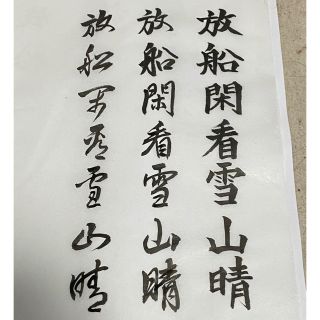 放船閑看雪山晴
放船閑看雪山晴
放船閑看雪山晴